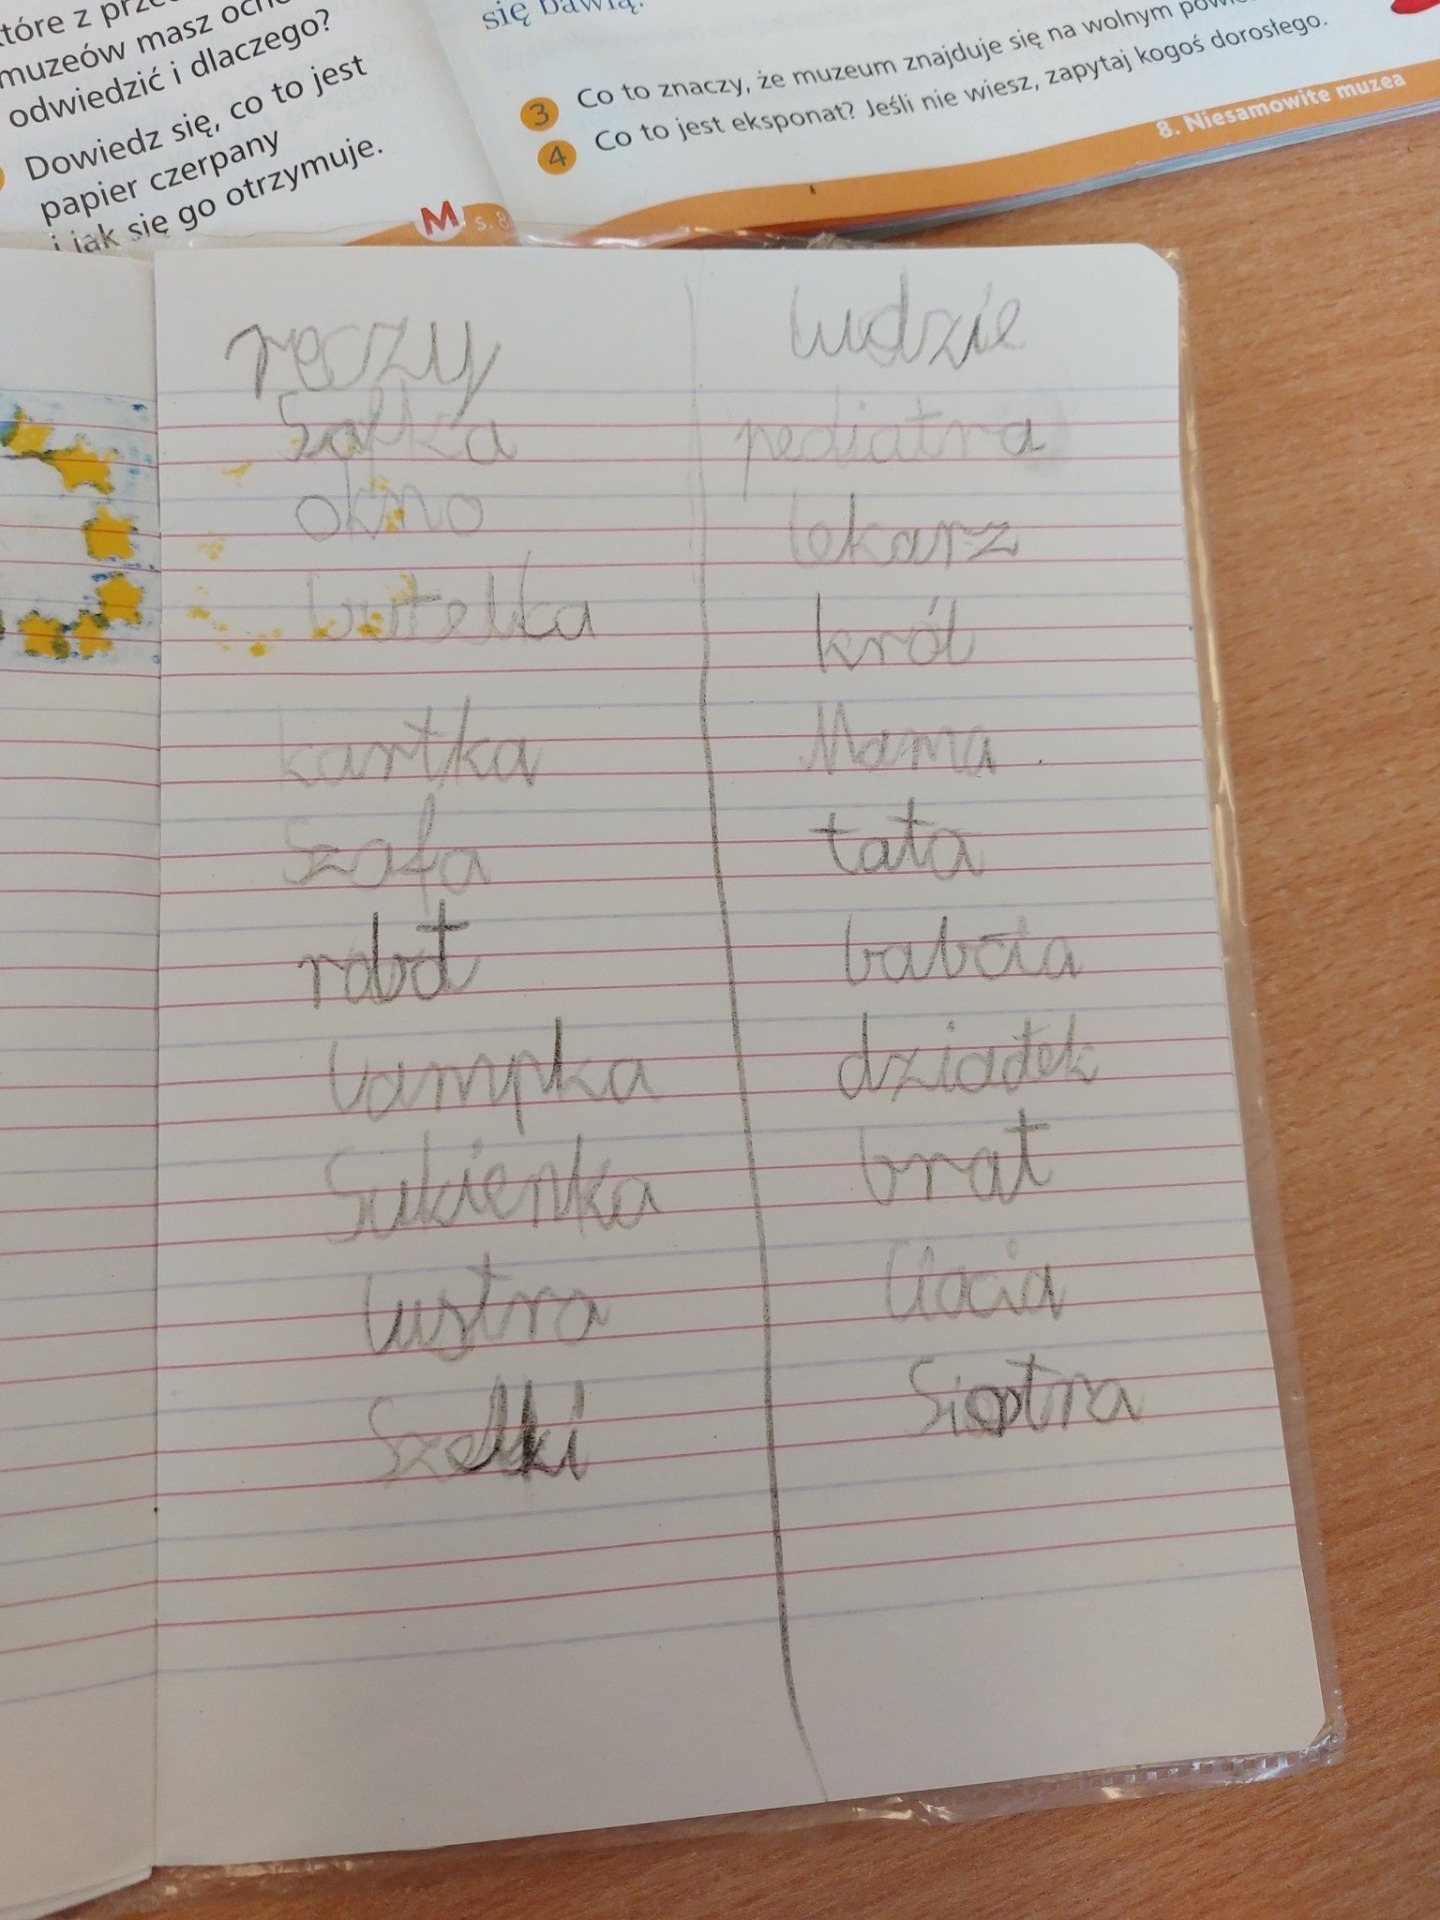 które z
muzeów masz
odwiedzić i dlaczego?
Dowiedz się, co to jest
papier czerpany
i jak się go otrzymuje.
M s. 8
się bawią.
3 Co to znaczy, że muzeum znajduje się na wolnym
4 Co to jest eksponat? Jeśli nie wiesz, zapytaj kogoś dorosłego.
8. Niesamowite muzea
reczy
Safka
okno
butelka
kartka
Szafa
robot
lampka
Sukienka
lustro
Szelki
ludzie
pediatra
lekarz
król
Mama
tata
babcia
dziadek
brat
Ciocia
Siostra